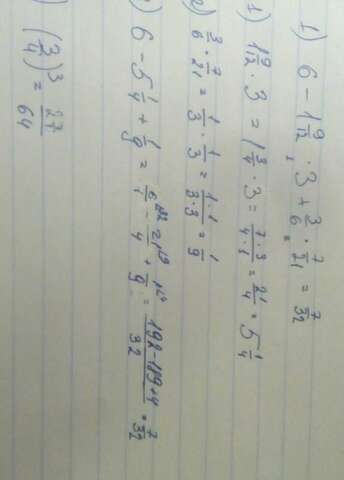 1) 6 - 1 9/12 · 3 + 3/6 · 7/21 = 7/32
1) 1 9/12 · 3 = 1 3/4 · 3 = 7·3/4·1 = 21/4 = 5 1/4
2) 3/6 · 7/21 = 1/3 · 1/3 = 1·1/3·3 = 1/9
) 6 - 5 1/4 + 1/9 = 6/1 - 21/4 + 1/9 = 192-189+4/32 = 7/32
) (3/4)³ = 27/64